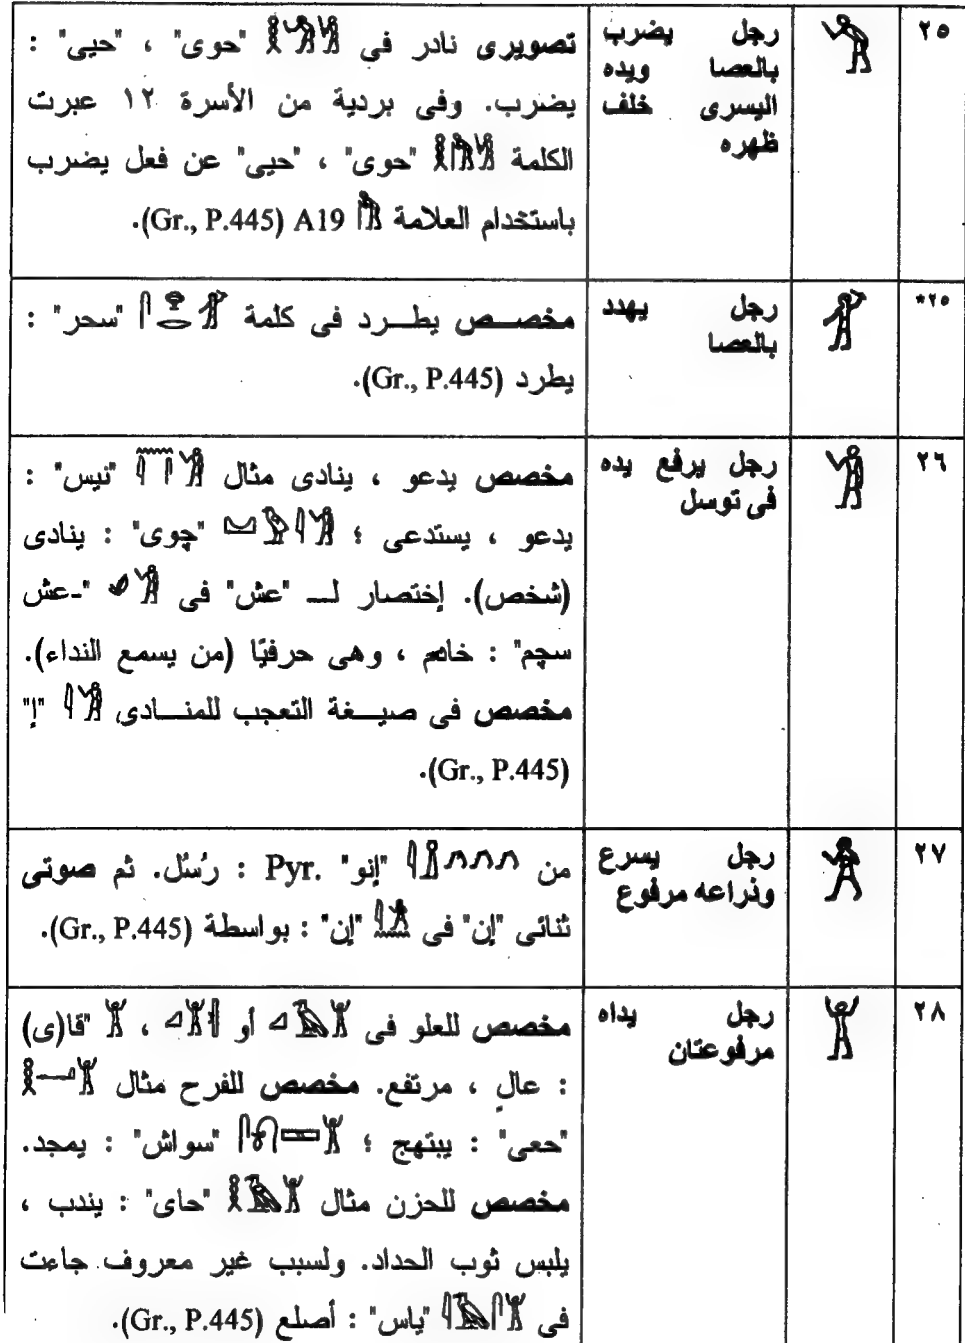 ٢٥
رجل يضرب
بالعصا ويده
اليسرى خلف
ظهره
تصويرى نادر فى "حوى" ، "حيى" :
يضرب. وفى بردية من الأسرة ١٢ عبرت
الكلمة "حوى" ، "حيى" عن فعل يضرب
باستخدام العلامة A19 (Gr., P.445).
*٢٥
رجل يهدد
بالعصا
مخصـــص يطـــرد فى كلمة "سحر" :
يطرد (Gr., P.445).
٢٦
رجل يرفع يده
فى توسل
مخصص يدعو ، ينادى مثال "نيس" :
يدعو ، يستدعى ؛ "چوى" : ينادى
(شخص). إختصار لـــ "عش" فى "-عش
سچم" : خادم ، وهى حرفيًا (من يسمع النداء).
مخصص فى صيـــغة التعجب للمنـــادى "إ"
(Gr., P.445).
٢٧
رجل يسرع
وذراعه مرفوع
من "إنو" Pyr. : رُسُل. ثم صوتى
ثنائى "إن" فى "إن" : بواسطة (Gr., P.445).
٢٨
رجل يداه
مرفوعتان
مخصص للعلو فى أو ، "قا(ى)
: عالٍ ، مرتفع. مخصص للفرح مثال
"حعى" : يبتهج ؛ "سواش" : يمجد.
مخصص للحزن مثال "حاى" : يندب ،
يلبس ثوب الحداد. ولسبب غير معروف جاءت
فى "ياس" : أصلع (Gr., P.445).